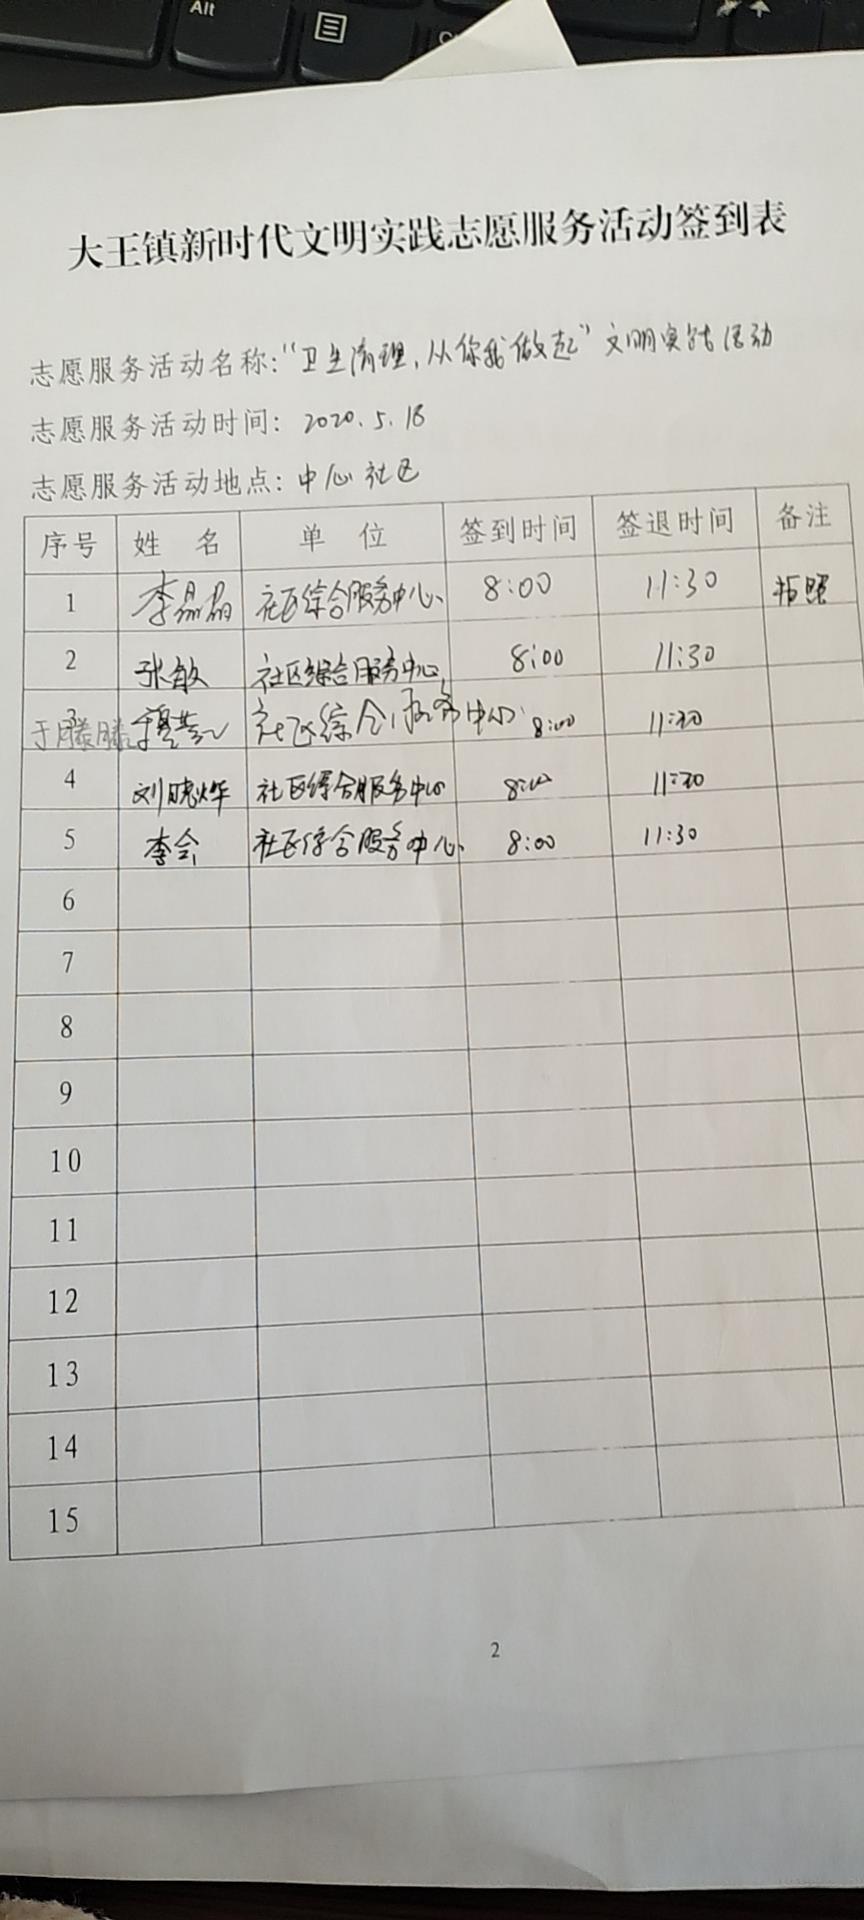 Alt
大王镇新时代文明实践志愿服务活动签到表
志愿服务活动名称:"卫生清理,从你我做起"文明实践活动
志愿服务活动时间: 2020.5.18
志愿服务活动地点: 中心社区
序号 姓 名 单 位 签到时间 签退时间 备注
1 李晶晶 社区综合服务中心 8:00 11:30 拍照
2 张敏 社区综合服务中心 8:00 11:30
3 于滕滕 社区综合服务中心 8:00 11:30
4 刘晓烨 社区综合服务中心 8:00 11:30
5 李会 社区综合服务中心 8:00 11:30
6
7
8
9
10
11
12
13
14
15
2